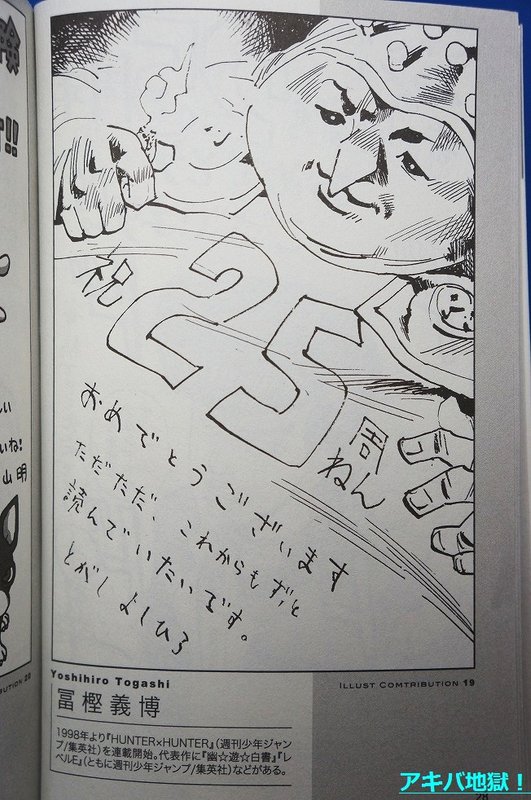 険
!!
祝
25
周
ねん
おめでとうございます
ただただ、これからもずっと
読んでいたいです。
とがしよしひろ
しい
いね!
山明
BUTION 20
Yoshihiro Togashi
ILLUST COMTRIBUTION 19
冨樫義博
1998年より『HUNTER×HUNTER』(週刊少年ジャン
プ/集英社)を連載開始。代表作に『幽☆遊☆白書』『レ
ベルE』(ともに週刊少年ジャンプ/集英社)などがある。
アキバ地獄!